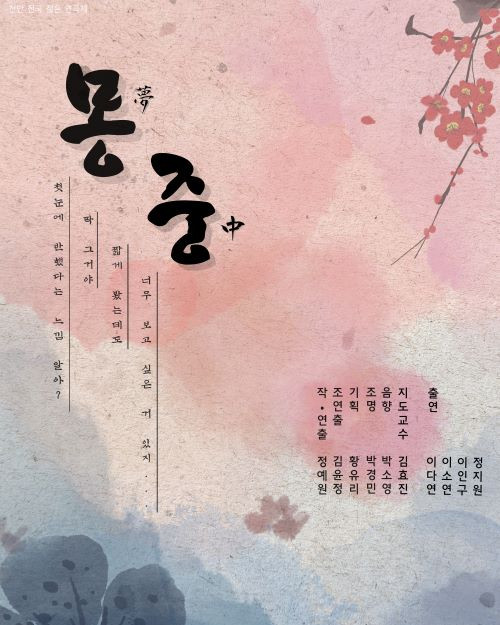 천안 전국 젊은 연극제
몽
夢
중
中
첫눈에 반했다는 느낌 알아?
딱 그거야
짧게 봤는데도
너무 보고 싶은 거 있지...
작•연출 정예원
조연출 김윤정
기획 황유리
조명 박경민
음향 박소영
지도교수 김효진
출연
이다연
이소연
이인구
정지원